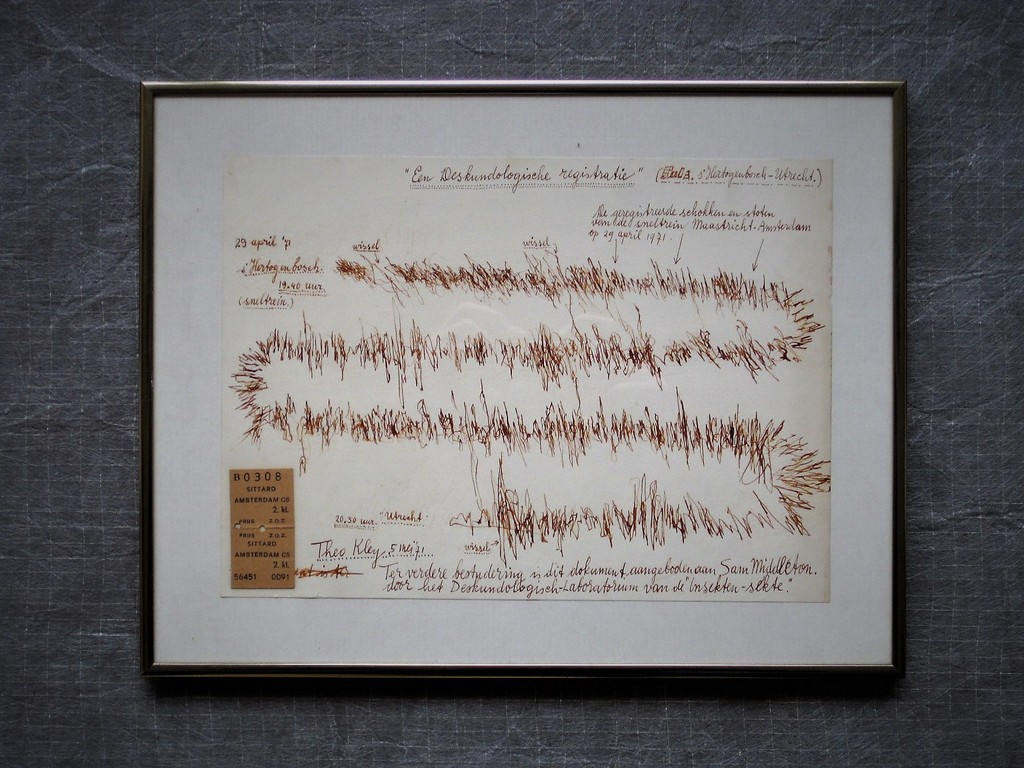 "Een Deskundologische registratie" ( s'Hertogenbosch-Utrecht.)
De geregistreerde schokken en stoten
van de sneltrein Maastricht-Amsterdam
op 29 april 1971.
29 april '71
s'Hertogenbosch.
19.40 uur.
(sneltrein.)
wissel
wissel
20.30 uur. Utrecht.
wissel
Theo Kley. 5 mei '71.
Ter verdere bestudering is dit dokument aangeboden aan Sam Middleton.
door het Deskundologisch-Laboratorium van de "Insekten-sekte".
B0308
SITTARD
AMSTERDAM CS
2. kl.
PRIJS Z.O.Z.
PRIJS Z.O.Z.
SITTARD
AMSTERDAM CS
2. kl.
56451 0091